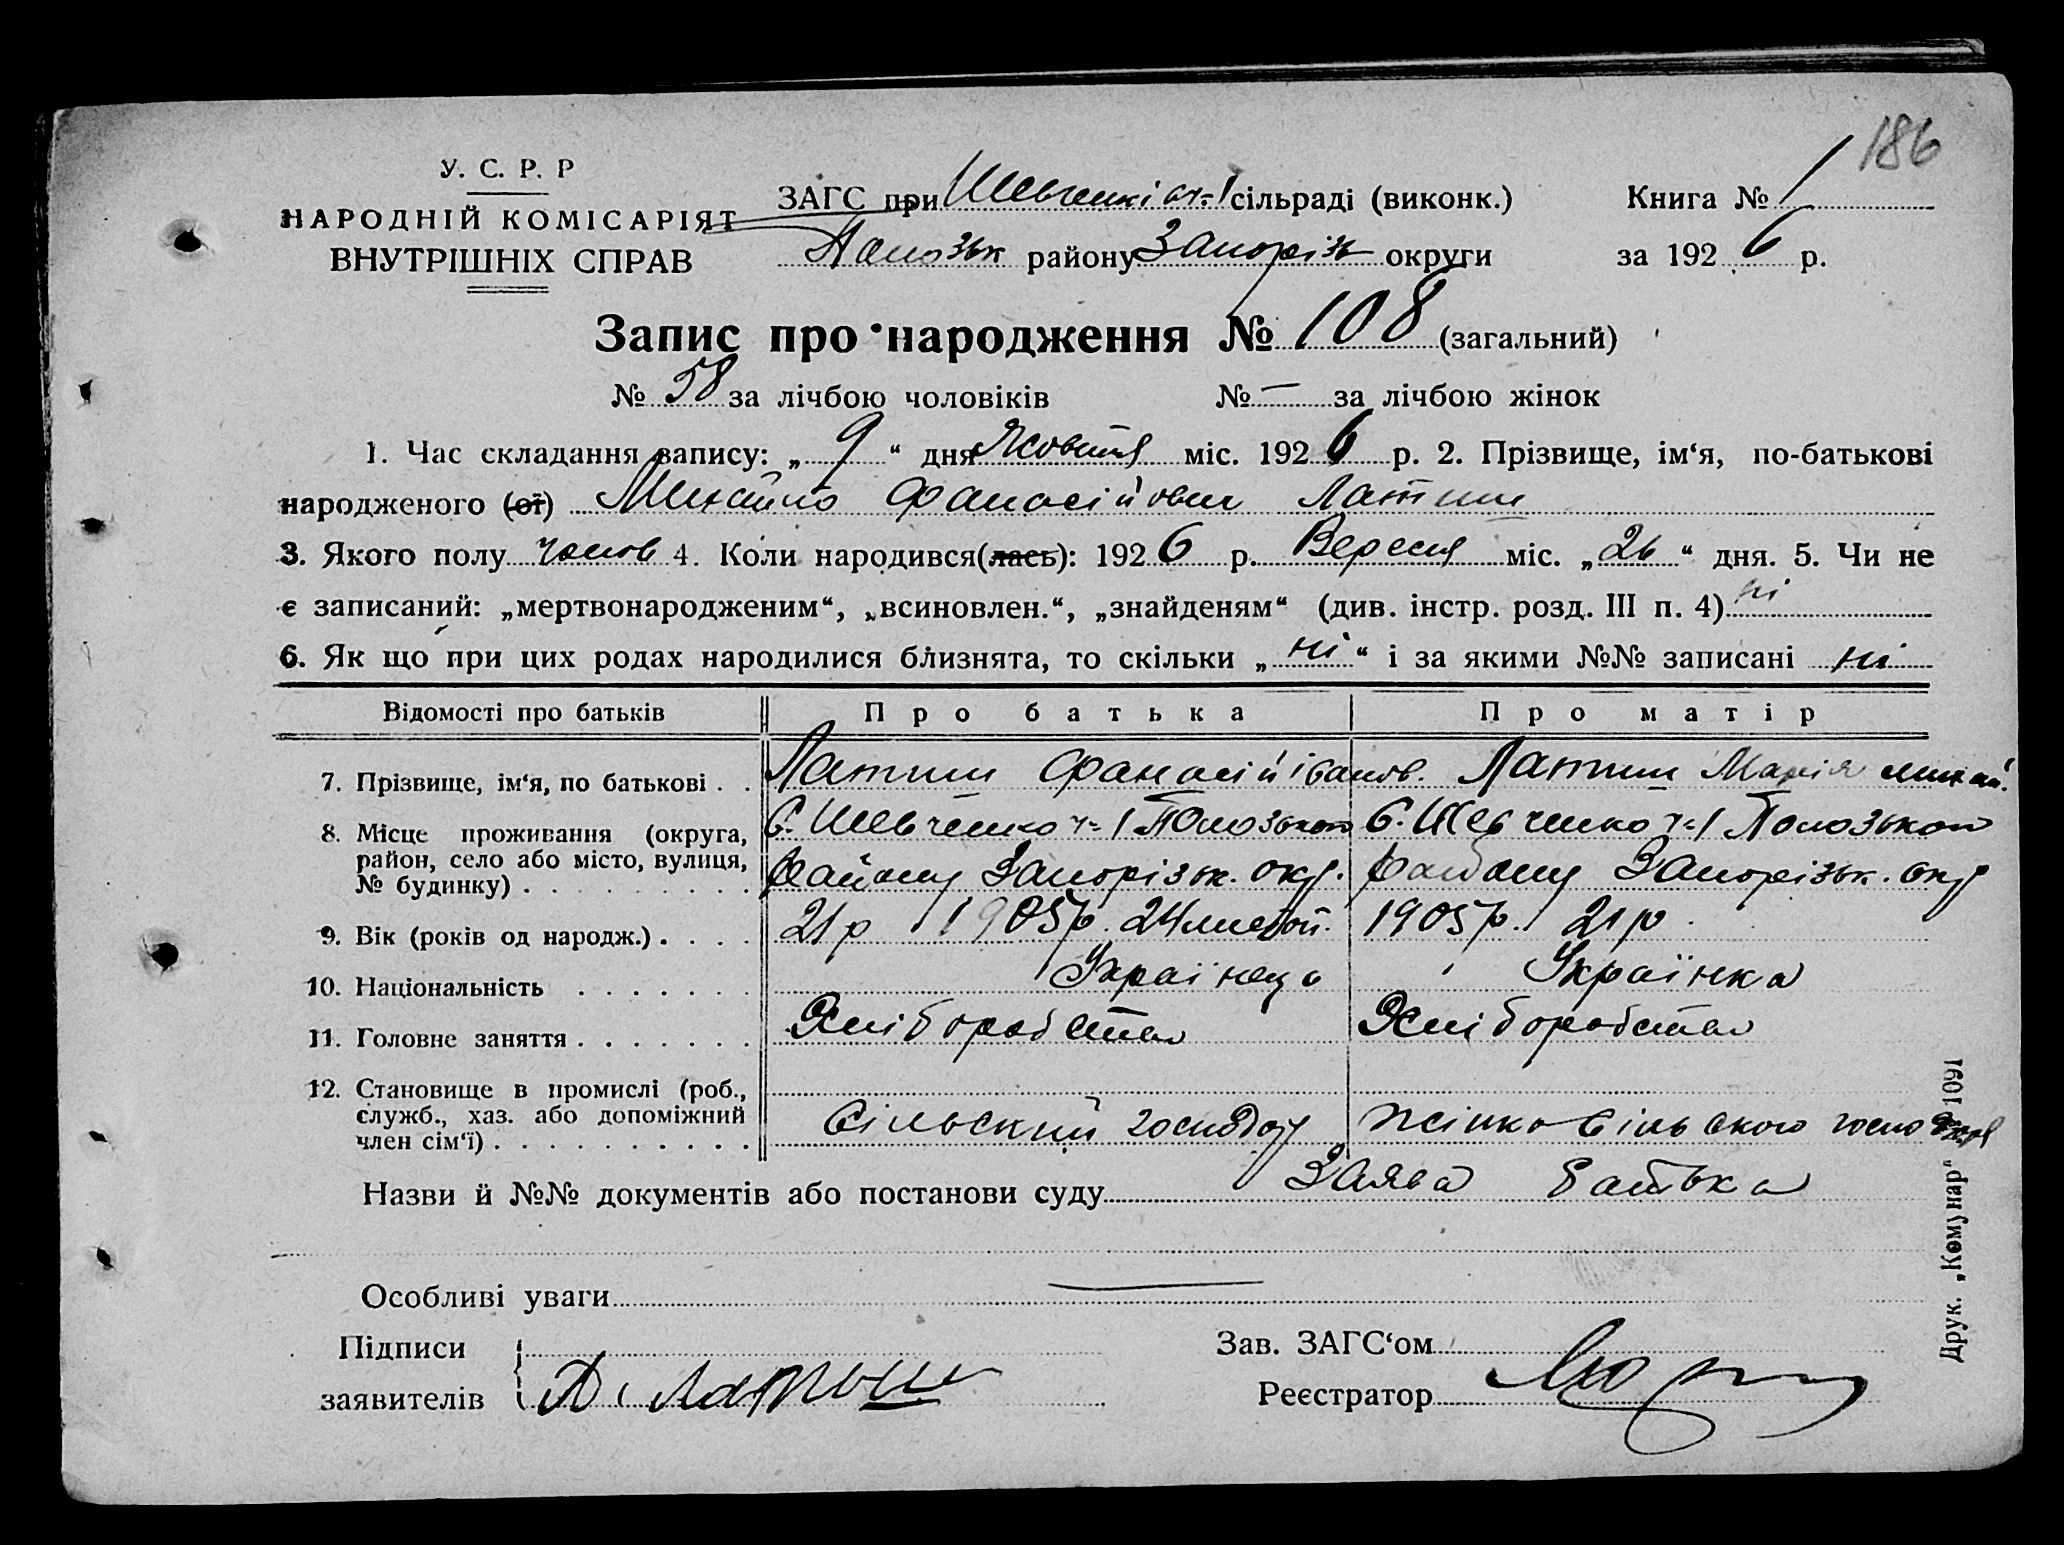 186
У. С. Р. Р
НАРОДНІЙ КОМІСАРІЯТ
ВНУТРІШНІХ СПРАВ
ЗАГС при Шевченківск-1 сільраді (виконк.)
Полозьк району Запорізь округи
Книга № 1
за 1926 р.
Запис про народження № 108 (загальний)
№ 58 за лічбою чоловіків № — за лічбою жінок
1. Час складання запису: „ 9 “ дня Жовтня міс. 1926 р. 2. Прізвище, ім‘я, по-батькові
народженого (ої) Михайло Фанасійович Латиш
3. Якого полу чолов 4. Коли народився(лась): 1926 р. Вересня міс. „26“ дня. 5. Чи не
є записаний: „мертвонародженим“, „всиновлен.“, „знайденям“ (див. інстр. розд. III п. 4) ні
6. Як що при цих родах народилися близнята, то скільки „ ні “ і за якими №№ записані ні
Відомості про батьків Про батька Про матір
7. Прізвище, ім‘я, по батькові . . Латиш Фанасій Іванов. Латиш Марія Михай.
8. Місце проживання (округа, район, село або місто, вулиця, № будинку) . . . . . . . . .
С. Шевченко ч-1 Полозького С. Шевченко ч-1 Полозького
району Запорізьк. окр. району Запорізьк. окр
9. Вік (років од народж.) . . . . 21 р 1905 р. 24 1905 р. 21 р.
10. Національність . . . . . . . Українець Українка
11. Головне заняття . . . . . . . Хліборобство Хліборобство
12. Становище в промислі (роб., служб., хаз. або допоміжний член сім‘ї) . . . . . . . . . .
Сільский господар жінка сільского господаря
Назви й №№ документів або постанови суду Заява батька
Особливі уваги
Підписи
заявителів
А. Латыш
Зав. ЗАГС‘ом
Реєстратор
Друк. „Комунар“ 1091